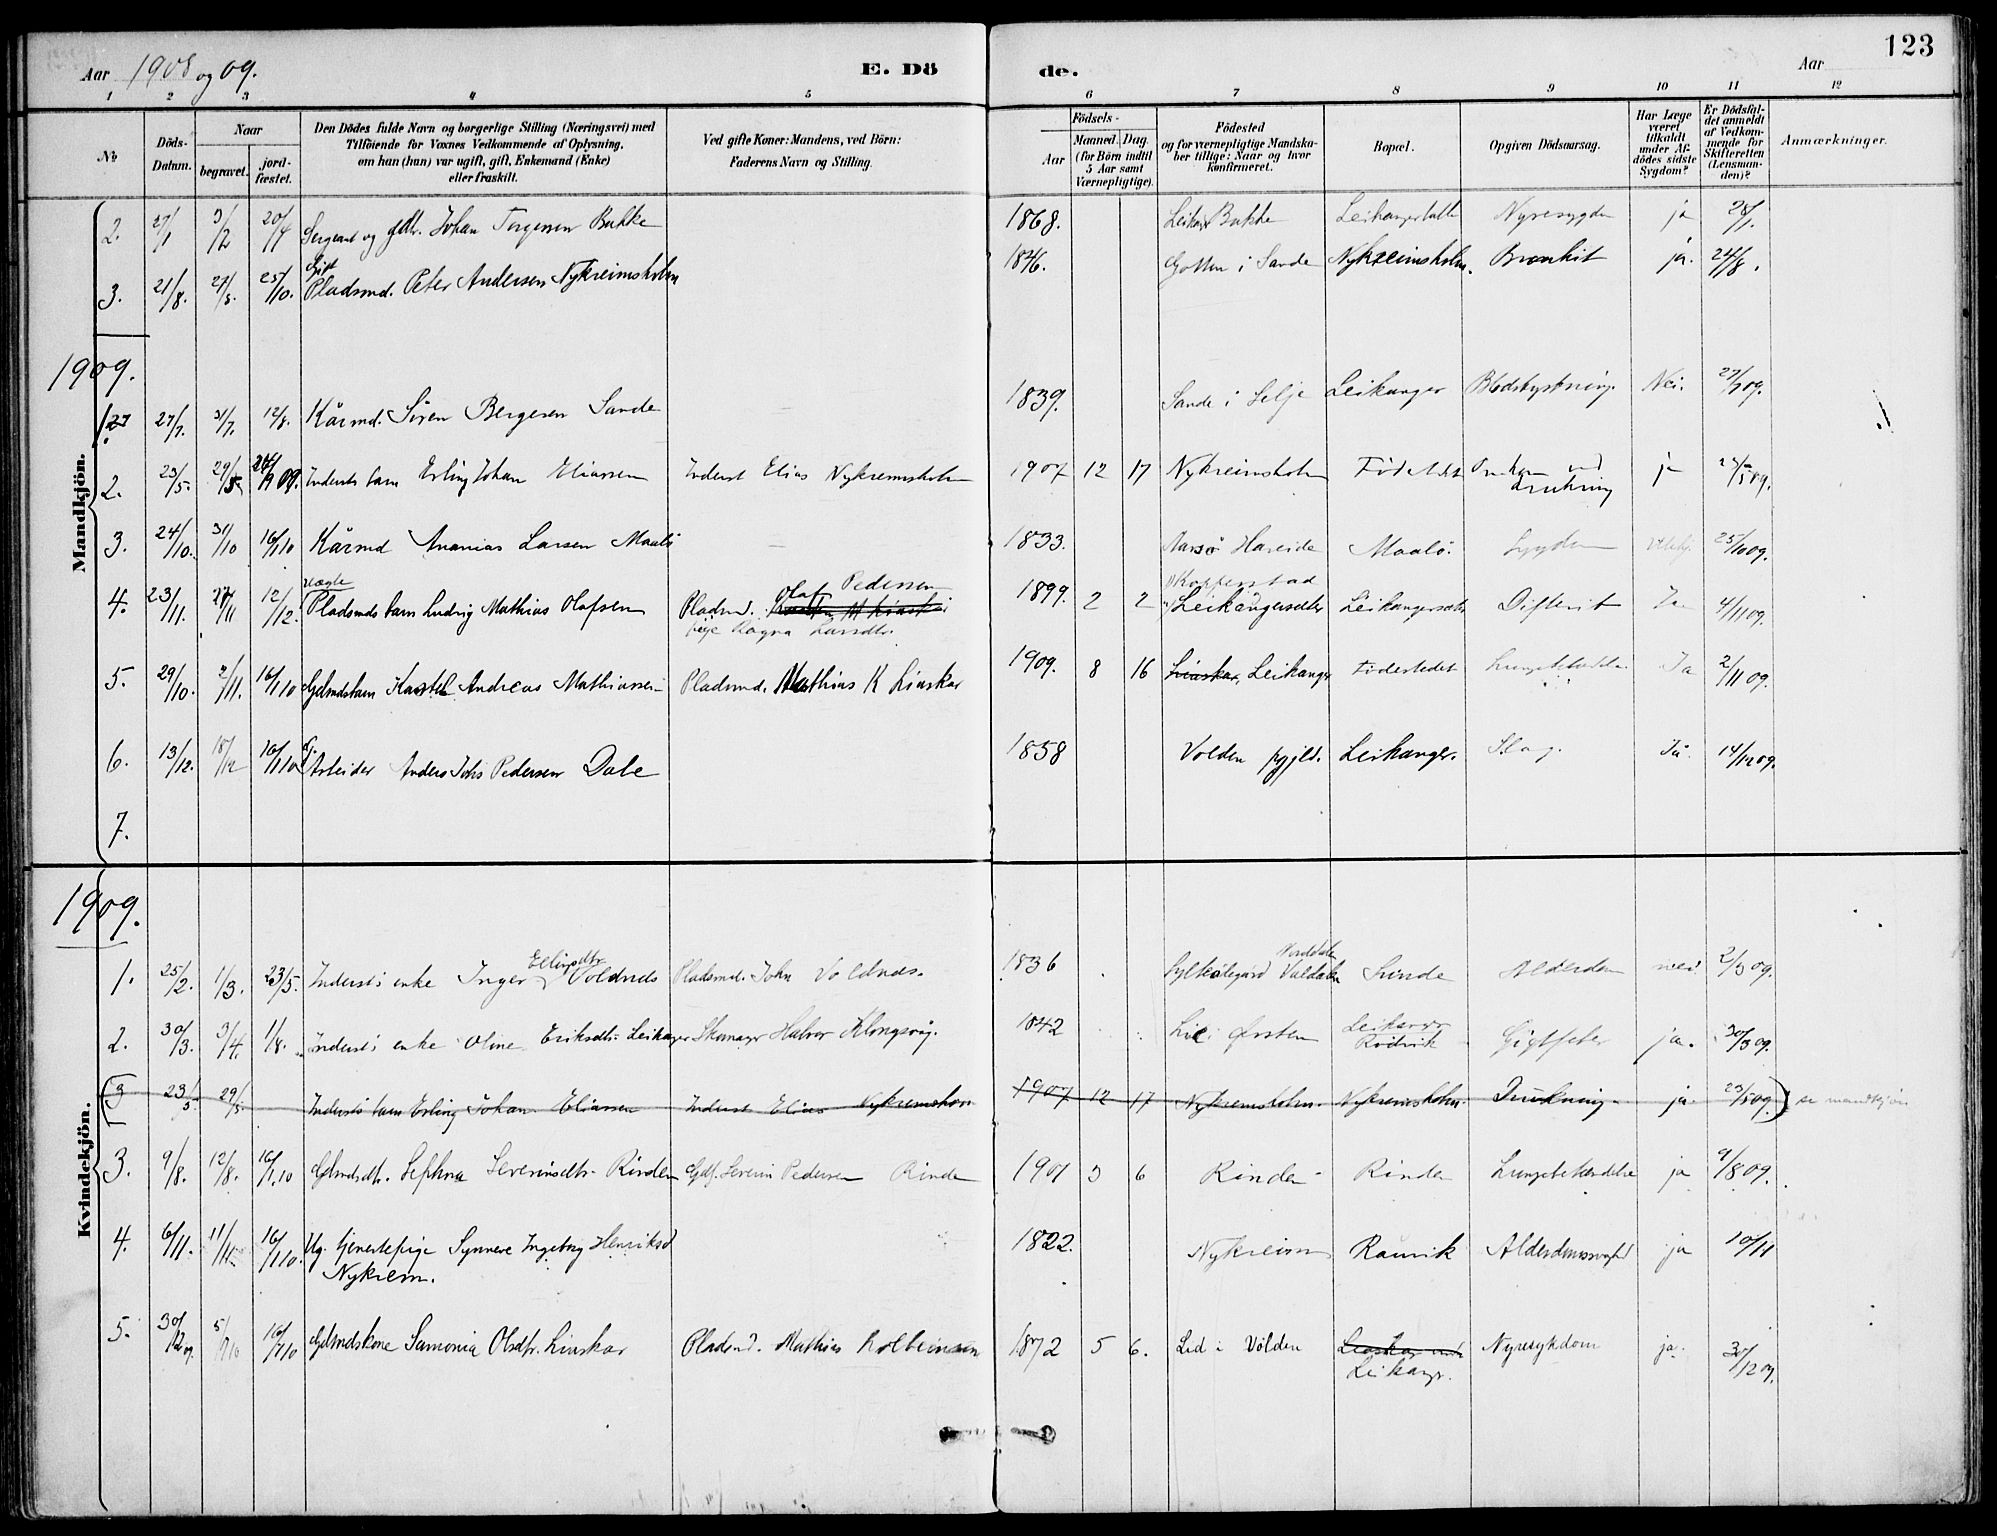 123
Aar 1908 og 09. E. Dö de. Aar
1 2 3 4 5 6 7 8 9 10 11 12
No
Döds-Datum.
Naar
begravet.
jord-fæstet.
Den Dödes fulde Navn og borgerlige Stilling (Næringsvei) med
Tilföiende for Voxnes Vedkommende af Oplysning,
om han (hun) var ugift, gift, Enkemand (Enke)
eller fraskilt.
Ved gifte Koner: Mandens, ved Börn:
Faderens Navn og Stilling.
Födsels-
Aar
Maaned. Dag.
(for Börn indtil
5 Aar samt
Værnepligtige).
Födested
og for værnepligtige Mandska-
ber tillige: Naar og hvor
konfirmeret.
Bopæl.
Opgiven Dödsaarsag.
Har Læge
været
tilkaldt
under Af-
dödes sidste
Sygdom?
Er Dödsfal-
det anmeldt
af Vedkom-
mende for
Skifteretten
(Lensman-
den)?
Anmærkninger.
Mandkjön.
2. 27/1 3/2 20/4 Sergeant og gdbr. Johan Bakke 1868. Bakke Nyresygdom ja 28/1.
3. 21/8. 27/8. 25/10. Gift Pladsmd. Peter Andersen Nykreimsholm 1846. i Sande Nykreimsholm. Bronkit ja. 24/8.
1909.
27/7. 31/7. 12/8. Kårmd. Sören Bergesen Sande 1839. Sande i Selje Leikanger Blodstyrtning. Nei. 27/7 09.
2. 23/5. 29/5 09. Inderst's barn Erling Johan Eliassen Inderst Elias Nykreimsholm 1907 12 17 Nykreimsholm Födestedet ja 23/5 09.
3. 24/10. 31/10 16/1 10 Kårmd Ananias Larsen Maalö 1833. Hareide Maalö. Sygdom 25/10 09.
4. 23/11. 27/11 12/12. uægte Pladsmds barn Ludvig Mathias Olafsen Pladsmd. Olaf Pedersen
pige Ragna Larsdtr. 1899. 2 2 Kopperstad
Leikangersæter Leikangersæter Difterit Ja 4/11 09.
5. 29/10. 2/11. 16/1 10 Gdmdsbarn Karsten Andreas Mathiassen Pladsmd. Mathias K Liaskar 1909. 8 16 Liaskar, Leikanger Födestedet Ja 2/11 09.
6. 13/12. 18/12 16/1 10 g. Arbeider Anders Johs Pedersen Dale 1858 Volden pgjld. Leikanger. Slag. Ja 14/12 09.
7.
Kvindekjön.
1909.
1. 25/2. 1/3. 23/5. Inderst's enke Inger Ellingsdtr. Voldnes Pladsmd. John Voldnes. 1836 Sunde Alderdom nei 2/3 09.
2. 30/3. 3/4. 1/8. Inderst's enke Oline Eriksdtr. Leikanger Skomager Halvor Klongsvåg. 1842 Lid Örsten Rödvik Gigtfeber ja. 30/3 09.
(3 23/5. 29/5. Inderst's barn Erling Johan Eliassen Inderst Elias Nykreimsholm 1907 12 17 Nykreimsholm. Nykreimsholm. Drukning. ja. 23/5 09.) se mandkjön
3. 9/8. 12/8. 16/1 10 Gdmdsdtr. Severinsdtr. Rinden Gdbr. Severin Pedersen Rinde 1901 3 6 Rinden Rinde Lungebetændelse ja 9/8 09.
4. 6/11. 11/11. 16/1 10. Ug. tjenestepige Synneve Ingeborg Henriksd
Nykreim. 1822. Nykreim Alderdomssvaghed ja 10/11
5. 30/12 09. 5/1 10 16/1 10 Gdmdskone Samonia Olsdtr. Liaskar Pladsmd. Mathias Kolbeinsen 1872 5 6. Lid i Völden Leikanger. Nyresykdom ja. 30/12 09.